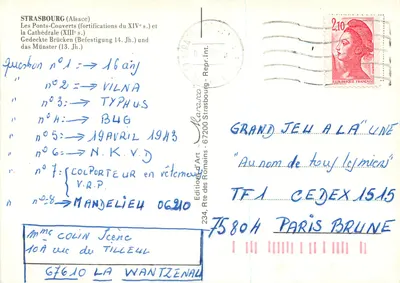 STRASBOURG (Alsace)
Les Ponts-Couverts (fortifications du XIVᵉ s.) et
la Cathédrale (XIIIᵉ s.)
Gedeckte Brücken (Befestigung 14. Jh.) und
das Münster (13. Jh.)
Question n°1: → 16 ans
" n°2 → VILNA
" n°3: → TYPHUS
" n°4: → BUG
" n°5: → 19 AVRIL 1943
" n°6: → N.K.V.D
" n°7: COLPORTEUR en vêtements
V.R.P.
" n°8 → MANDELIEU 06210
Mme COLIN
10A rue du TILLEUL
67610 LA WANTZENAU
Editions d'Art
234, Rte des Romains - 67200 Strasbourg - Repr. Int.
2,10
GRAND JEU A LA "UNE
"Au nom de tous les miens"
TF1 CEDEX 1515
75804 PARIS BRUNE